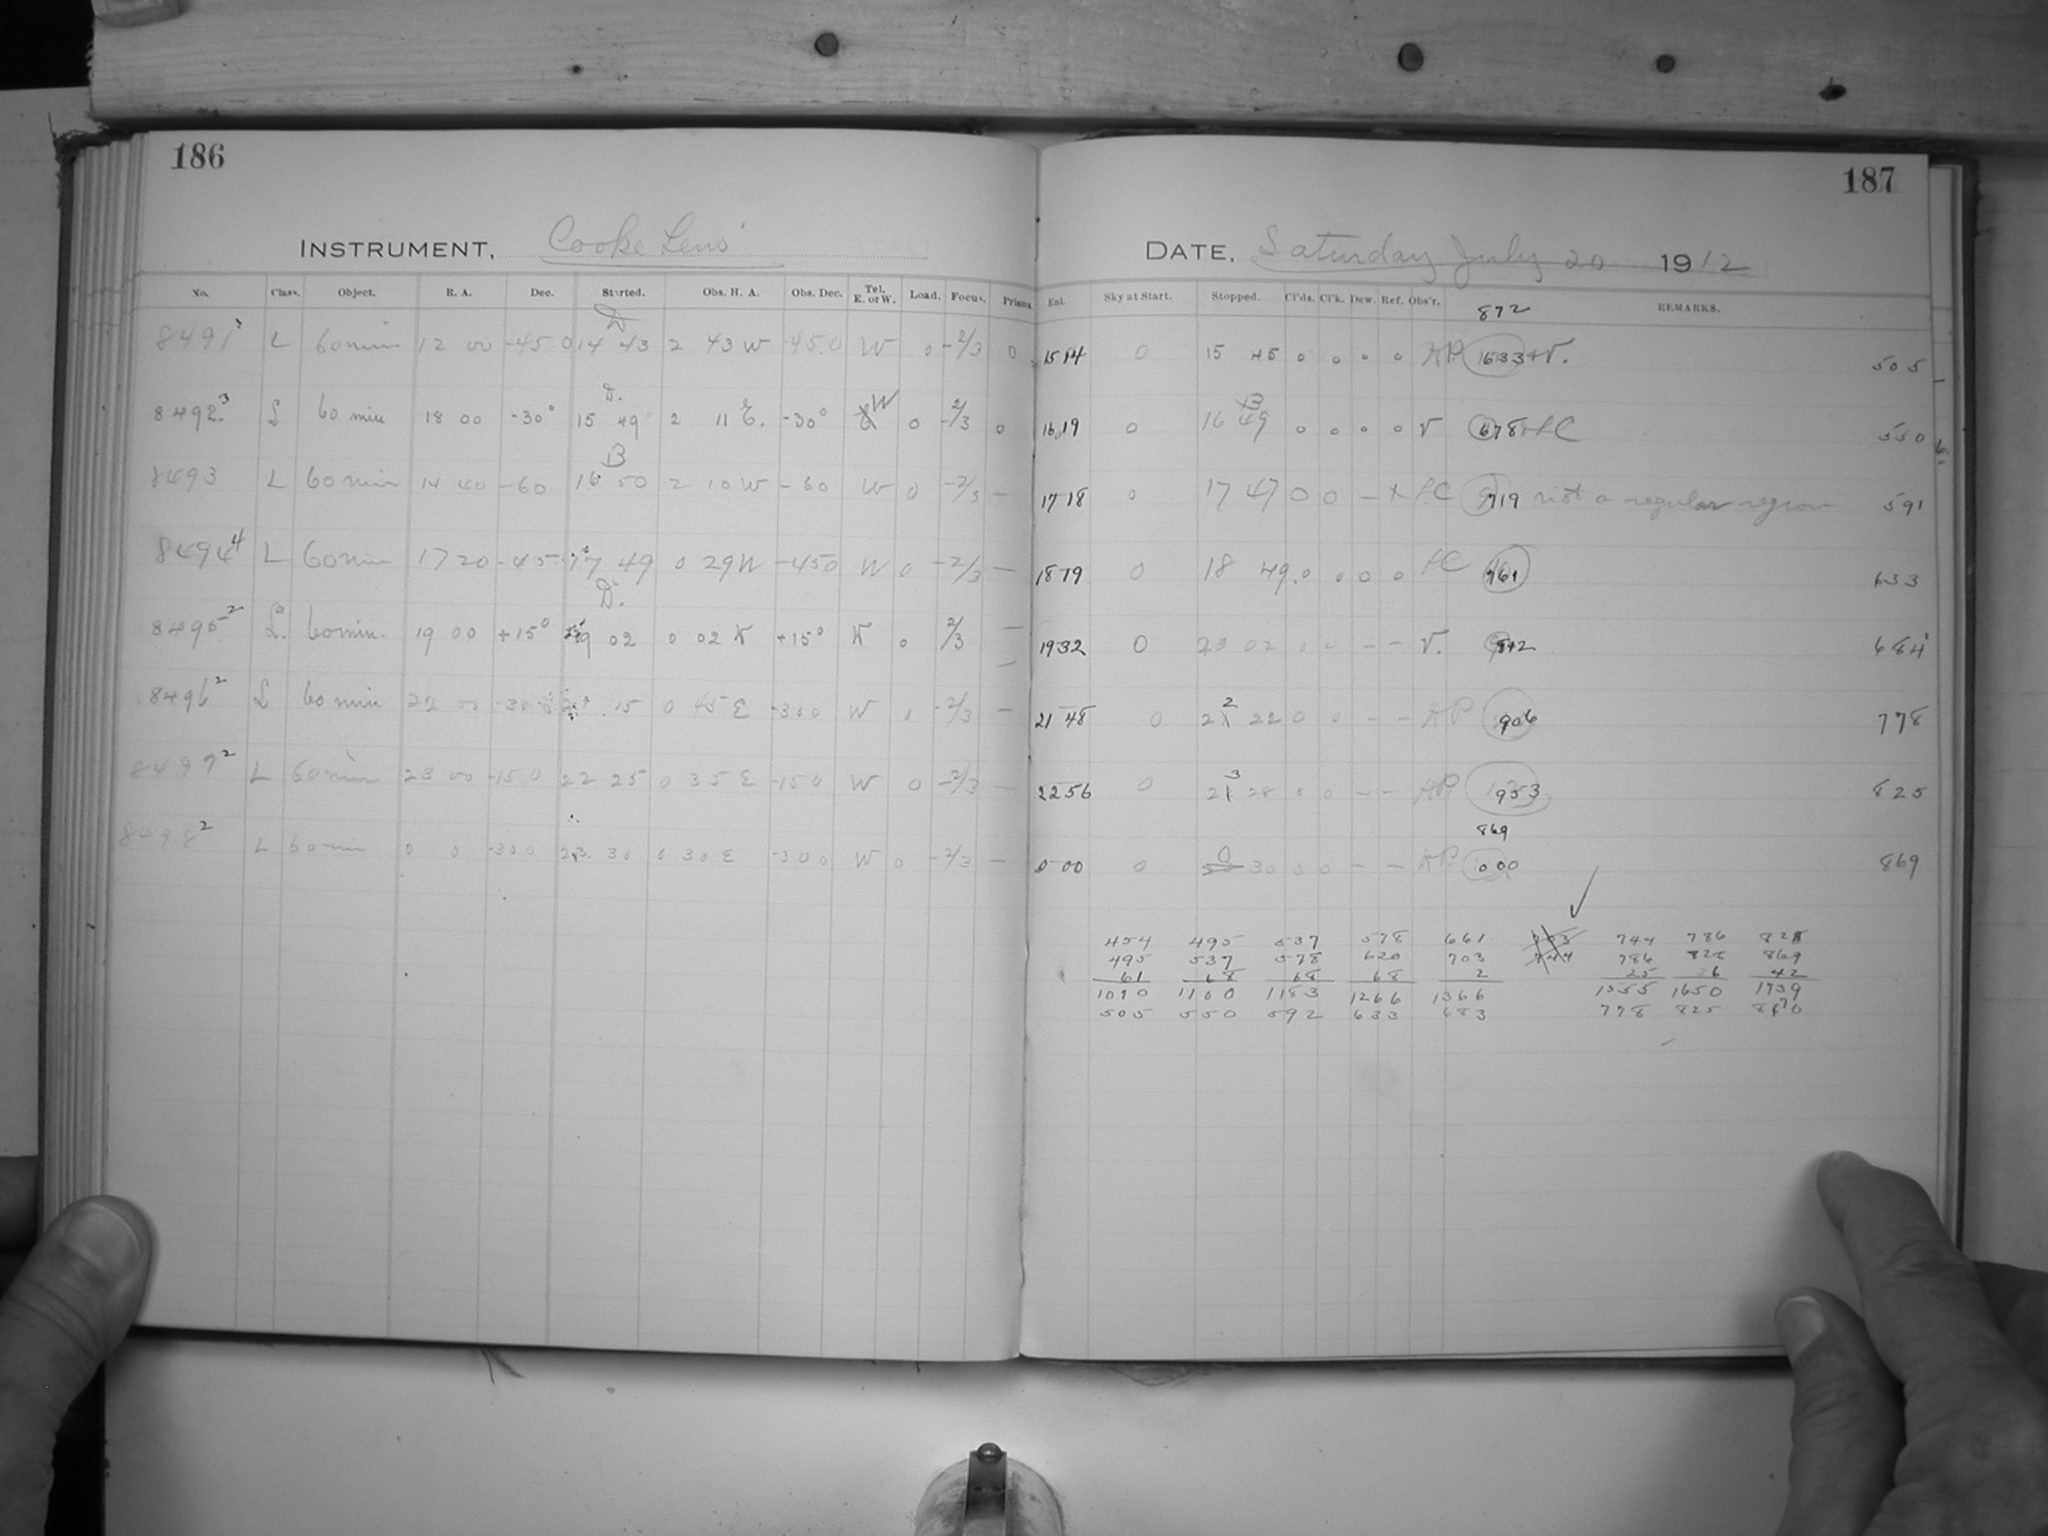 186
187
INSTRUMENT, Cooke Lens
DATE, Saturday July 20 1912
No. Class. Object. R. A. Dec. Started. Obs. H. A. Obs. Dec. Tel. E. or W. Load. Focus. Prisms. Ent. Sky at Start. Stopped. Cl'ds. Cl'k. Dew. Ref. Obs'r. REMARKS.
D 872
8491 L 60 min 12 00 -45 0 14 43 2 43 W -45.0 W 0 -2/3 0 15 14 0 15 45 0 0 0 0 505
D. W B
8492 3 L 60 min 18 00 -30° 15 49 2 11 E. -30° 0 -2/3 0 16 19 0 16 49 0 0 0 0 V 678 550
B
8493 L 60 min 14 40 -60 16 50 2 10 W -60 W 0 -2/3 — 17 18 0 17 47 0 0 — LC 719 not a regular region 591
8494 4 L 60 min 17 20 -45 17 49 0 29 W -45 0 W 0 -2/3 — 18 19 0 18 49 0 0 0 0 LC 761 633
D.
8495 2 L. 60 min. 19 00 +15° 19 02 0 02 +15° 0 2/3 — 19 32 0 20 02 0 0 — — V. 684
8496 2 L 60 min 22 00 -30 15 0 45 E -30 0 W -2/3 — 21 48 0 22 22 0 0 — — AP 906 778
8497 2 L 60 min 23 00 -15 0 22 25 0 35 E -15 0 W 0 -2/3 — 22 56 0 23 28 0 0 — — AP 953 825
869
8498 2 L 60 min 0 0 -30 0 23 30 0 30 E -30 0 W 0 -2/3 — 0 00 0 0 30 0 0 — — AP 000 869
454 495 537 578 661 744 786 828
495 537 578 620 703 786 828 869
61 68 68 68 2 25 36 42
1010 1100 1183 1266 1366 1555 1650 1739
505 550 592 633 683 778 825 870